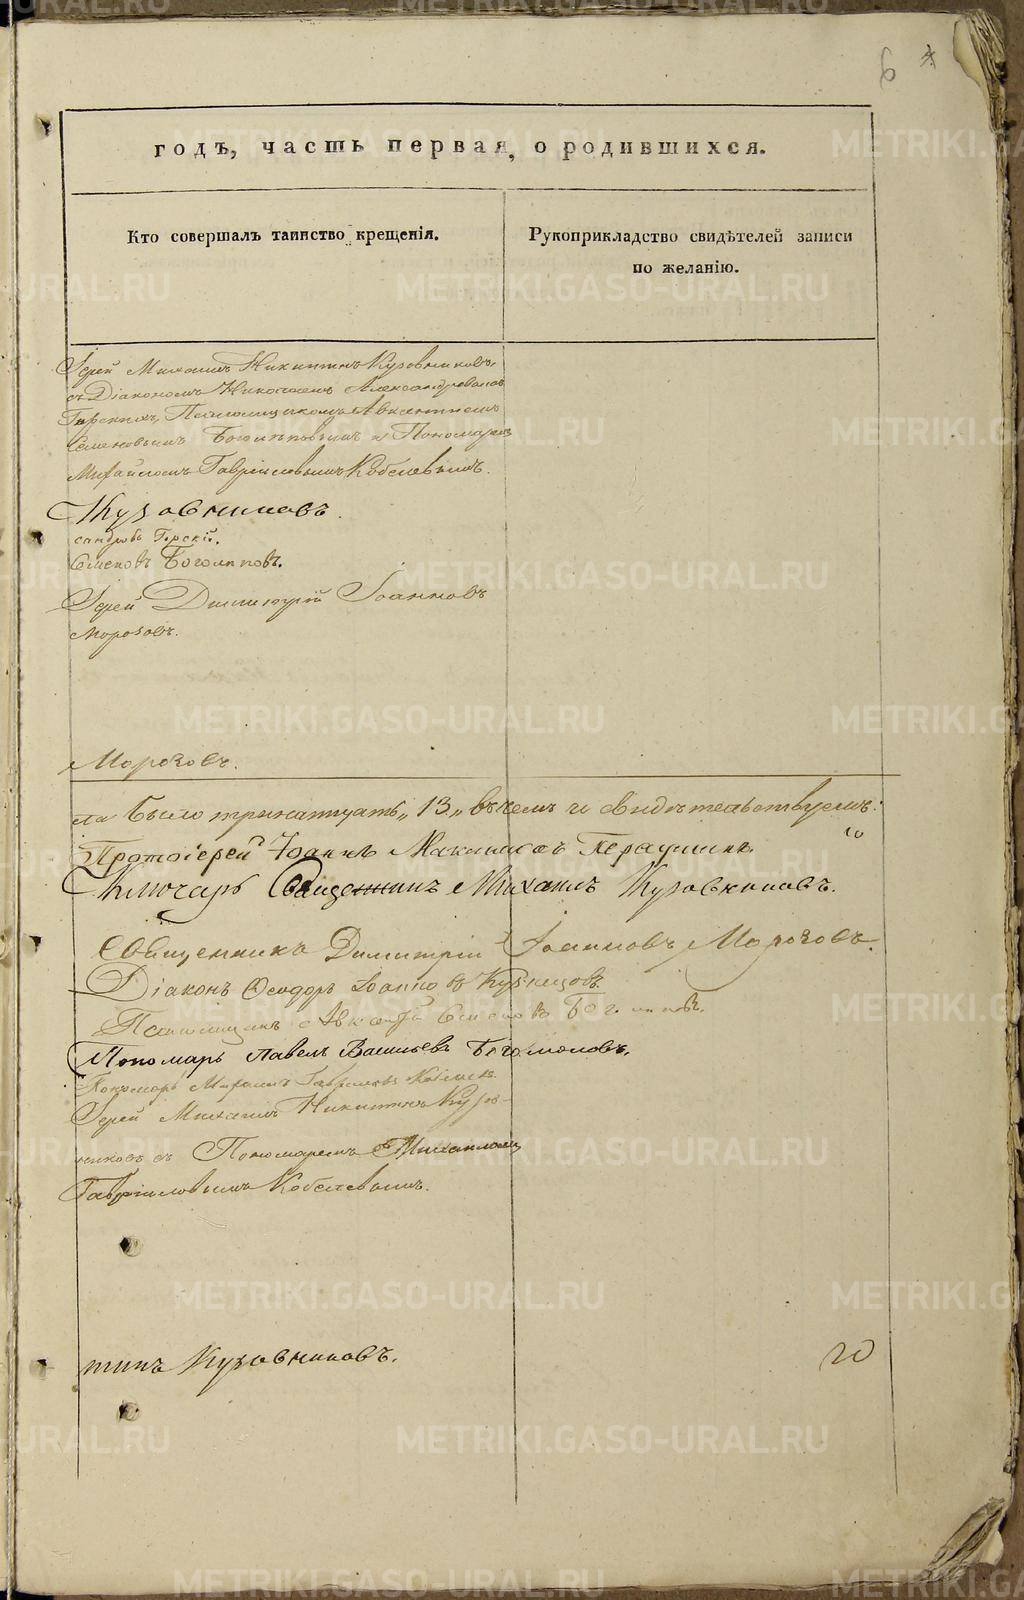 6
годъ, часть первая, о родившихся.
Кто совершалъ таинство крещенія.
Рукоприкладство свидѣтелей записи
по желанію.
Іерей Михаилъ Никитинъ Кузовниковъ,
съ Діакономъ Николаемъ Александровымъ
Горскимъ, Псаломщикомъ Авксентіемъ
Семеновымъ Боголѣповымъ и Пономаремъ
Михайломъ Гавріиловымъ Кобелевымъ.
Кузовниковъ.
сандровъ Горскій.
Семеновъ Боголѣповъ.
Іерей Димитрій Іоанновъ
Морозовъ.
Морозовъ.
ла было тринатцать „13„ въ чемъ и свидѣтельствуемъ:
Протоіерей Іоаннъ Максимовъ
Ключарь Священникъ Михаилъ Кузовниковъ.
Священникъ Димитрій Іоанновъ Морозовъ.
Діаконъ Ѳеодоръ Іоанновъ Кузнецовъ
Псаломщикъ Авксентій Семеновъ Боголѣповъ.
Пономарь Павелъ Васильевъ Богомоловъ.
Пономарь Михаилъ Гавриловъ Кобелевъ.
Іерей Михаилъ Никитинъ Кузов-
никовъ съ Пономаремъ Михаиломъ
Гавріиловымъ Кобелевымъ.
тинъ Кузовниковъ.
20
METRIKI.GASO-URAL.RU